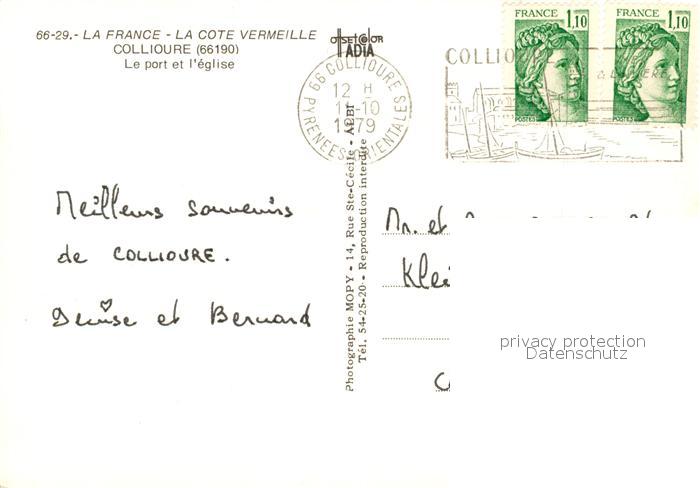 66-29.- LA FRANCE - LA COTE VERMEILLE
COLLIOURE (66190)
Le port et l'église
OFFSET COLOR
IADIA
66 COLLIOURE
12 H
11-10
1979
PYRENEES ORIENTALES
COLLIO
& LUMIERE
FRANCE
1,10
POSTES
FRANCE
1,10
POSTES
Meilleurs souvenirs
de COLLIOURE.
Denise et Bernard
Photographie MOPY - 14, Rue Ste-Cécile - ALBI
Tél. 54-25-20 - Reproduction interdite
Mr. et
Klei
privacy protection
Datenschutz